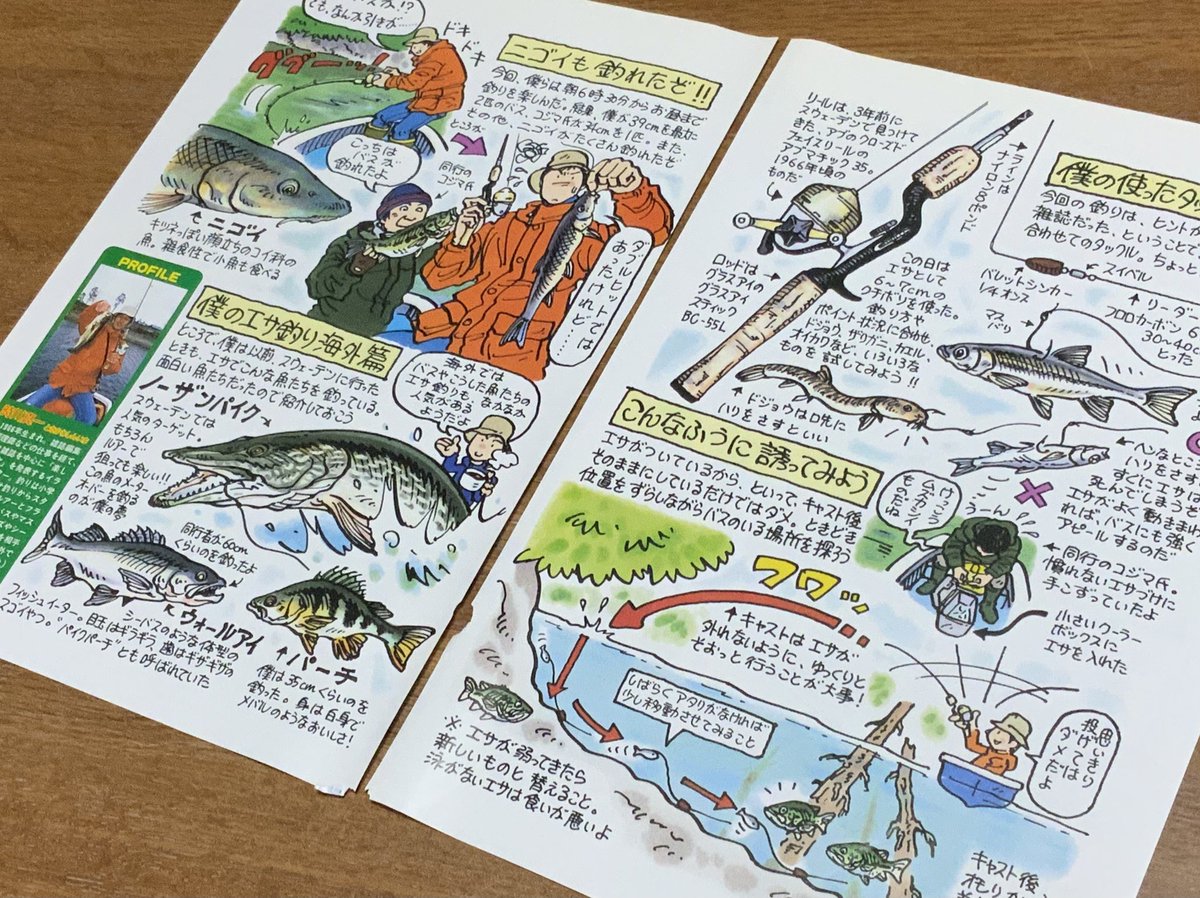 でも、なんか引きが……
ドキ
ドキ
ググーッ!
ニゴイも釣れたぞ!!
今回、僕らは朝6時30分からお昼まで
釣りを楽しんだ。結果、僕が39cmを頭に
2匹のバス、コジマ氏が34cmを1匹。また、
その他、ニゴイがたくさん釣れたぞ
こっちは
バスが
釣れたよ
同行の
コジマ氏
ダブルヒットでは
あったけれど……
ニゴイ
キツネっぽい顔立ちのコイ科の
魚。雑食性で小魚も食べる
PROFILE
僕のエサ釣り海外篇
ところで、僕は以前スウェーデンに行った
ときも、エサでこんな魚たちを釣っている。
面白い魚たちだったので紹介しておこう
海外では
バスやこうした魚たちの
エサ釣りも、なかなか
人気がある
ようだよ
ノーザンパイク
スウェーデンでは
人気のターゲット。
もちろん
ルアーで
狙っても楽しい!!
この魚のメーター
オーバーを釣る
のが、僕の夢
同行者が60cm
くらいのを釣ったよ
ウォールアイ
シーバスのような体型の
フィッシュイーター。目玉はギラギラ、歯はギザギザの
スゴイやつ。"パイクパーチ"とも呼ばれていた
パーチ
僕は35cmくらいのを
釣った。身は白身で
メバルのようなおいしさ!
リールは、3年前に
スウェーデンで見つけて
きた、アブのクローズド
フェイスリールの
アブマチック35。
1966年頃の
ものだ
ラインは
ナイロン8ポンド
僕の使ったタ
今回の釣りは、ヒントが
雑誌だった、ということで
合わせてのタックル。ちょっと
スイベル
バレットシンカー
1/4オンス
リーダー
フロロカーボン
30〜40c
とった
マス
バリ
ロッドは
グラスアイの
グラスアイ
スティック
BC-55L
この日は
エサとして
6〜7cmの
クチボソを使った。
釣り方や
ポイント状況に合わせ、
ドジョウ、ザリガニ、カエル、
オイカワなど、いろいろな
ものを試してみよう!!
ドジョウは口先に
ハリをさすといい
ヘンなところ
ハリをさすと
すぐにエサは
死んでしまうぞ
エサがよく動きまわ
れば、バスにも強く
アピールするのだ
こんなふうに誘ってみよう
エサがついているから、といって キャスト後
そのままにしているだけではダメ。ときどき
位置をずらしながらバスのいる場所を探ろう
けっこう
ムズカシイ
もんだね
うーん
同行のコジマ氏。
慣れないエサづけに
手こずっていたよ
小さいクーラー
ボックスに
エサを入れた
フワッ
キャストはエサが
外れないように、ゆっくりと
そおっと行うことが大事!
しばらくアタリがなければ
少し移動させてみること
思いきり
投げては
ダメだよ
※エサが弱ってきたら
新しいものと替えること。
泳がないエサは食いが悪いよ
キャスト後、
オモリが